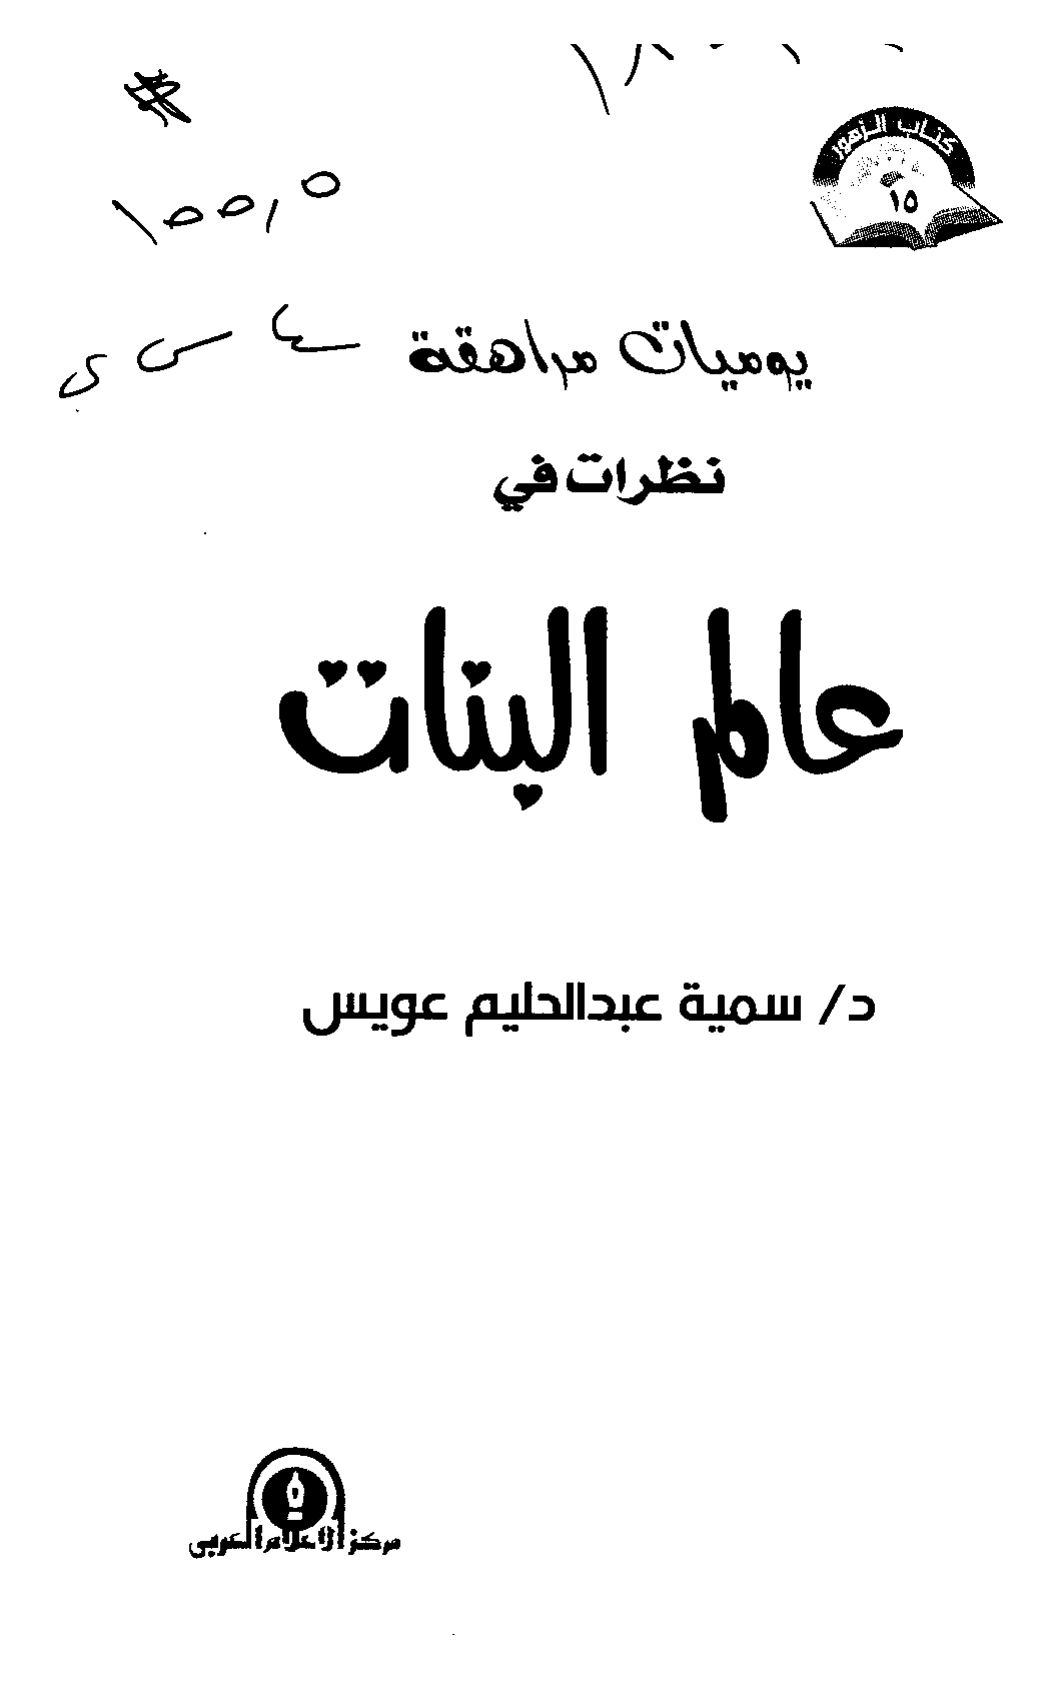 كتاب الزهور
١٥
١٥٥,٥
يوميات مراهقة
نظرات في
عالم البنات
د/ سمية عبدالحليم عويس
مركز الإعلام العربي